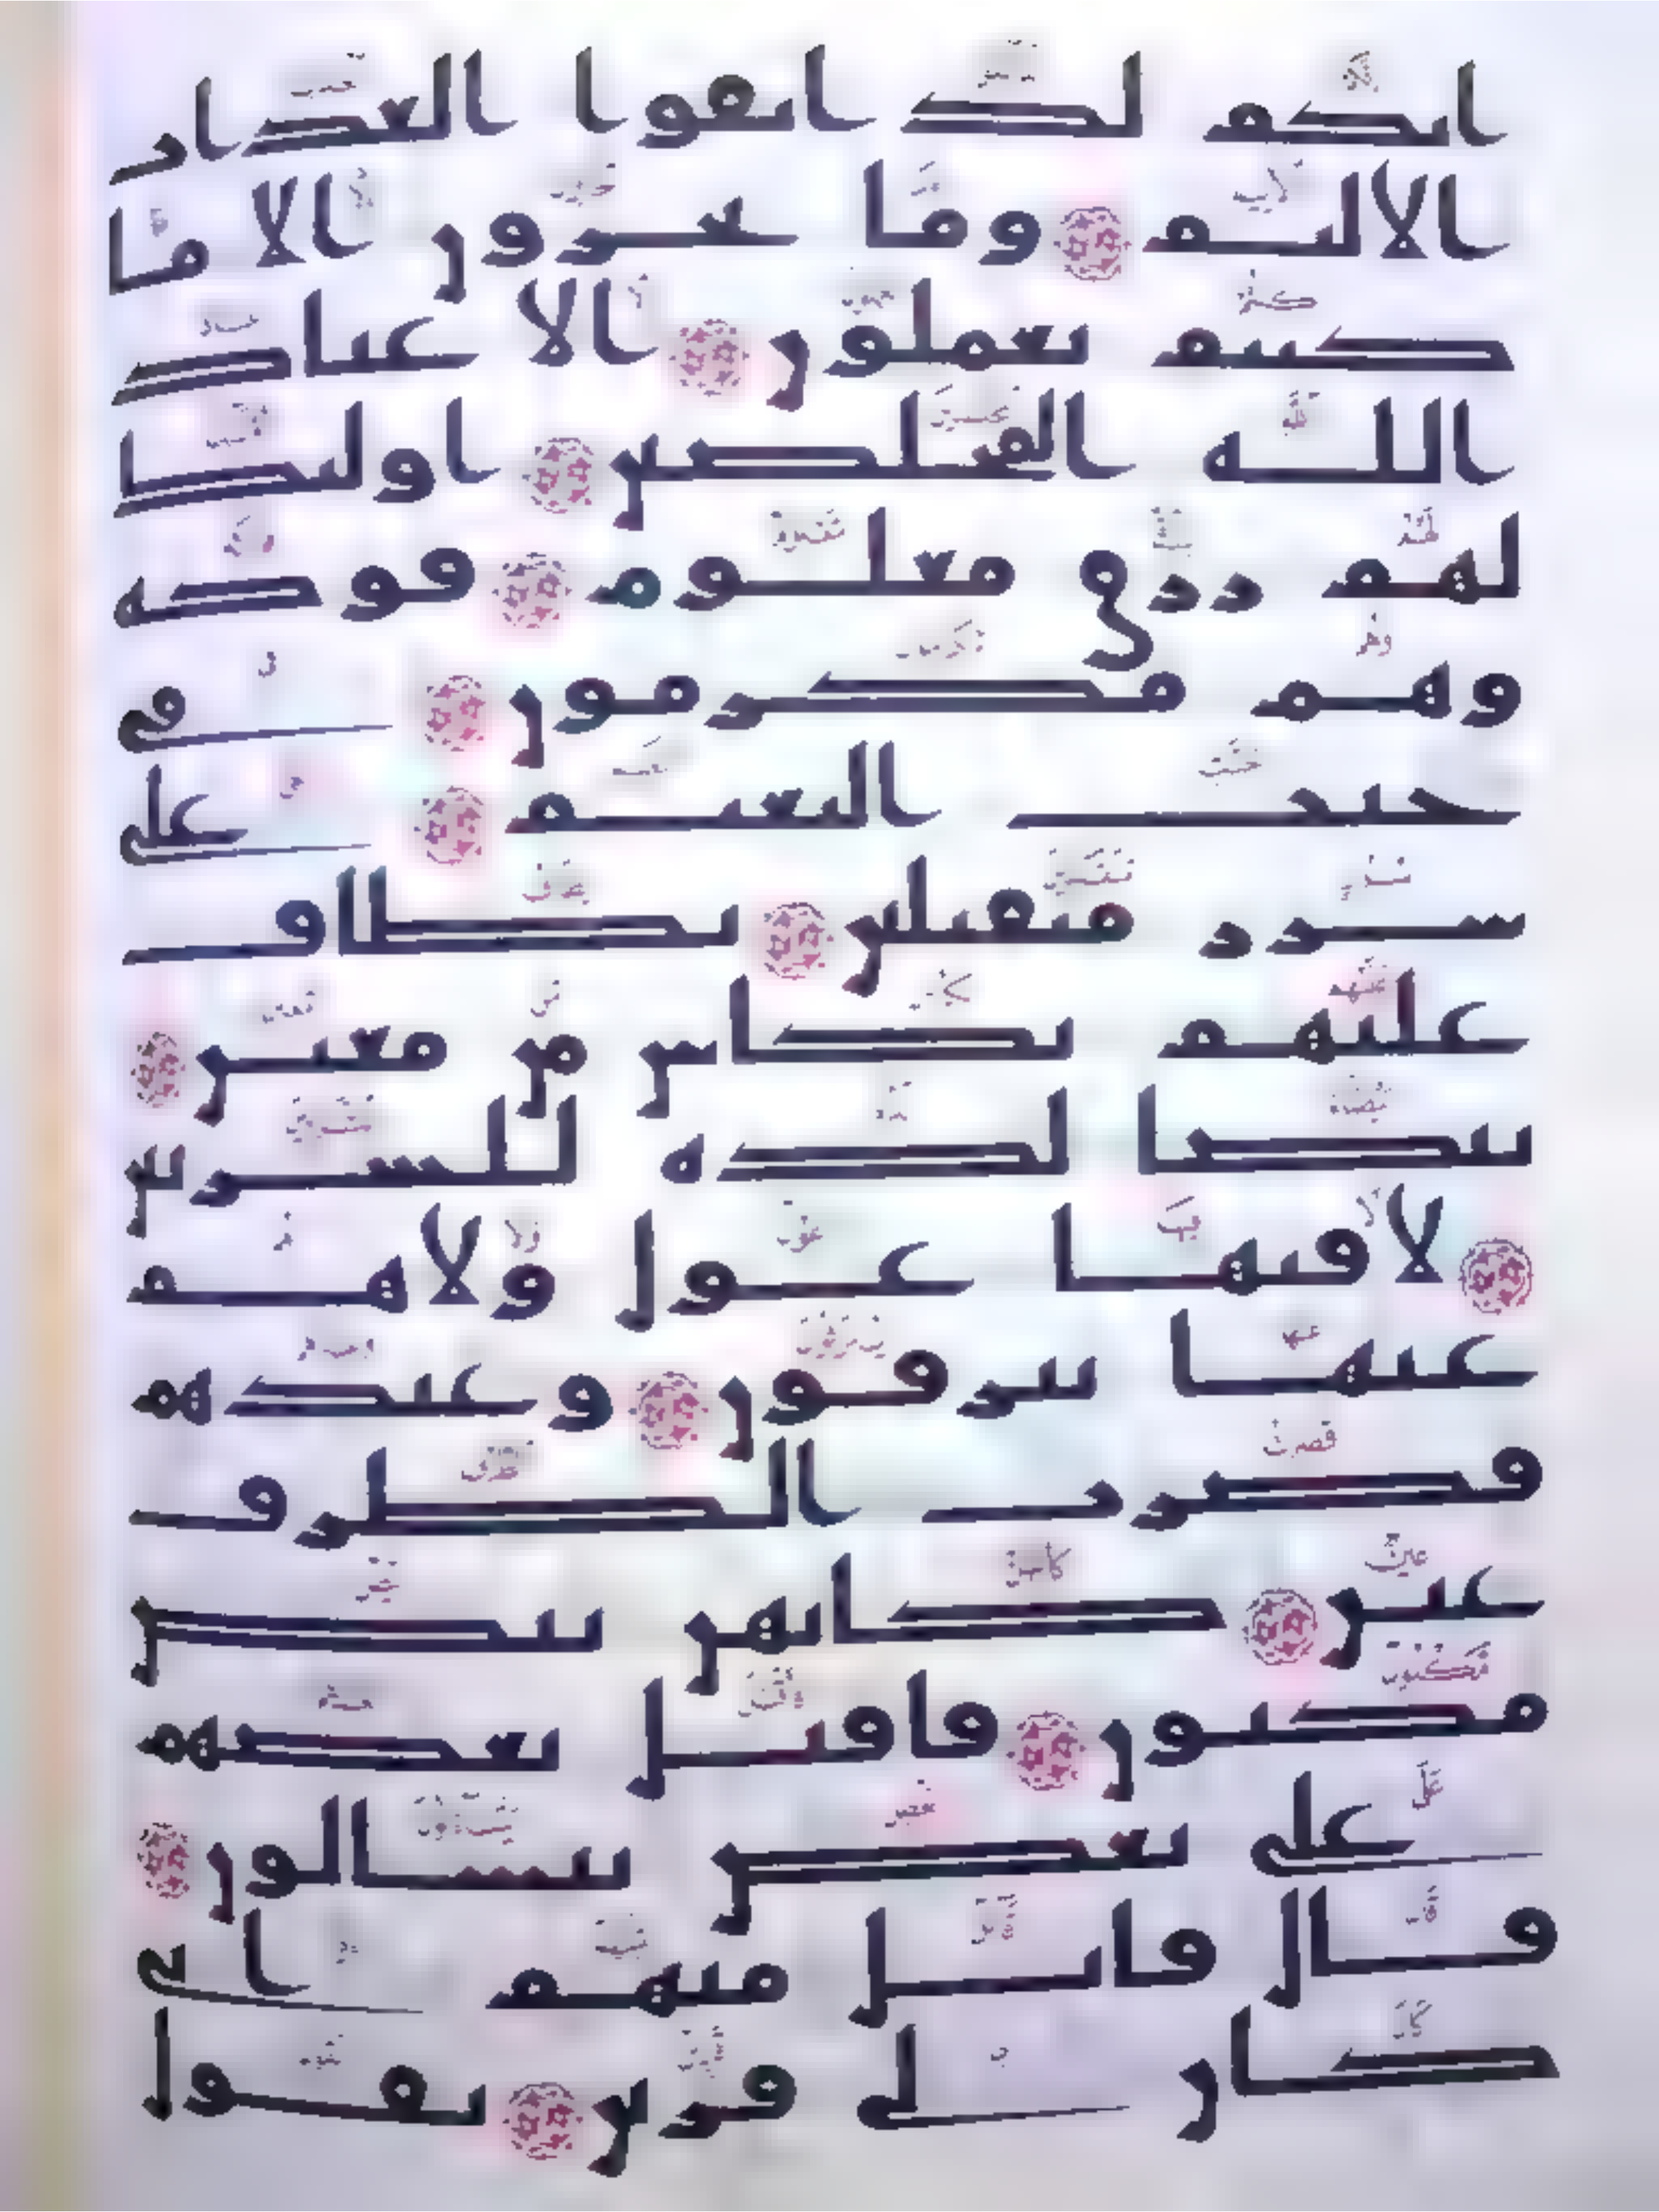 انكم لذ ائقوا العذاب
الاليم وما تجزون الا ما
كنتم تعملون الا عباد
الله المخلصين اولئك
لهم رزق معلوم فوكه
وهم مكرمون في
جنت النعيم على
سرر متقبلين يطاف
عليهم بكاس من معين
بيضا لذه للشربين
لا فيها غول ولا هم
عنها ينزفون وعندهم
قصرت الطرف
عين كانهن بيض
مكنون فاقبل بعضهم
على بعض يتسالون
قال قائل منهم اني
كان لي قرين يقول